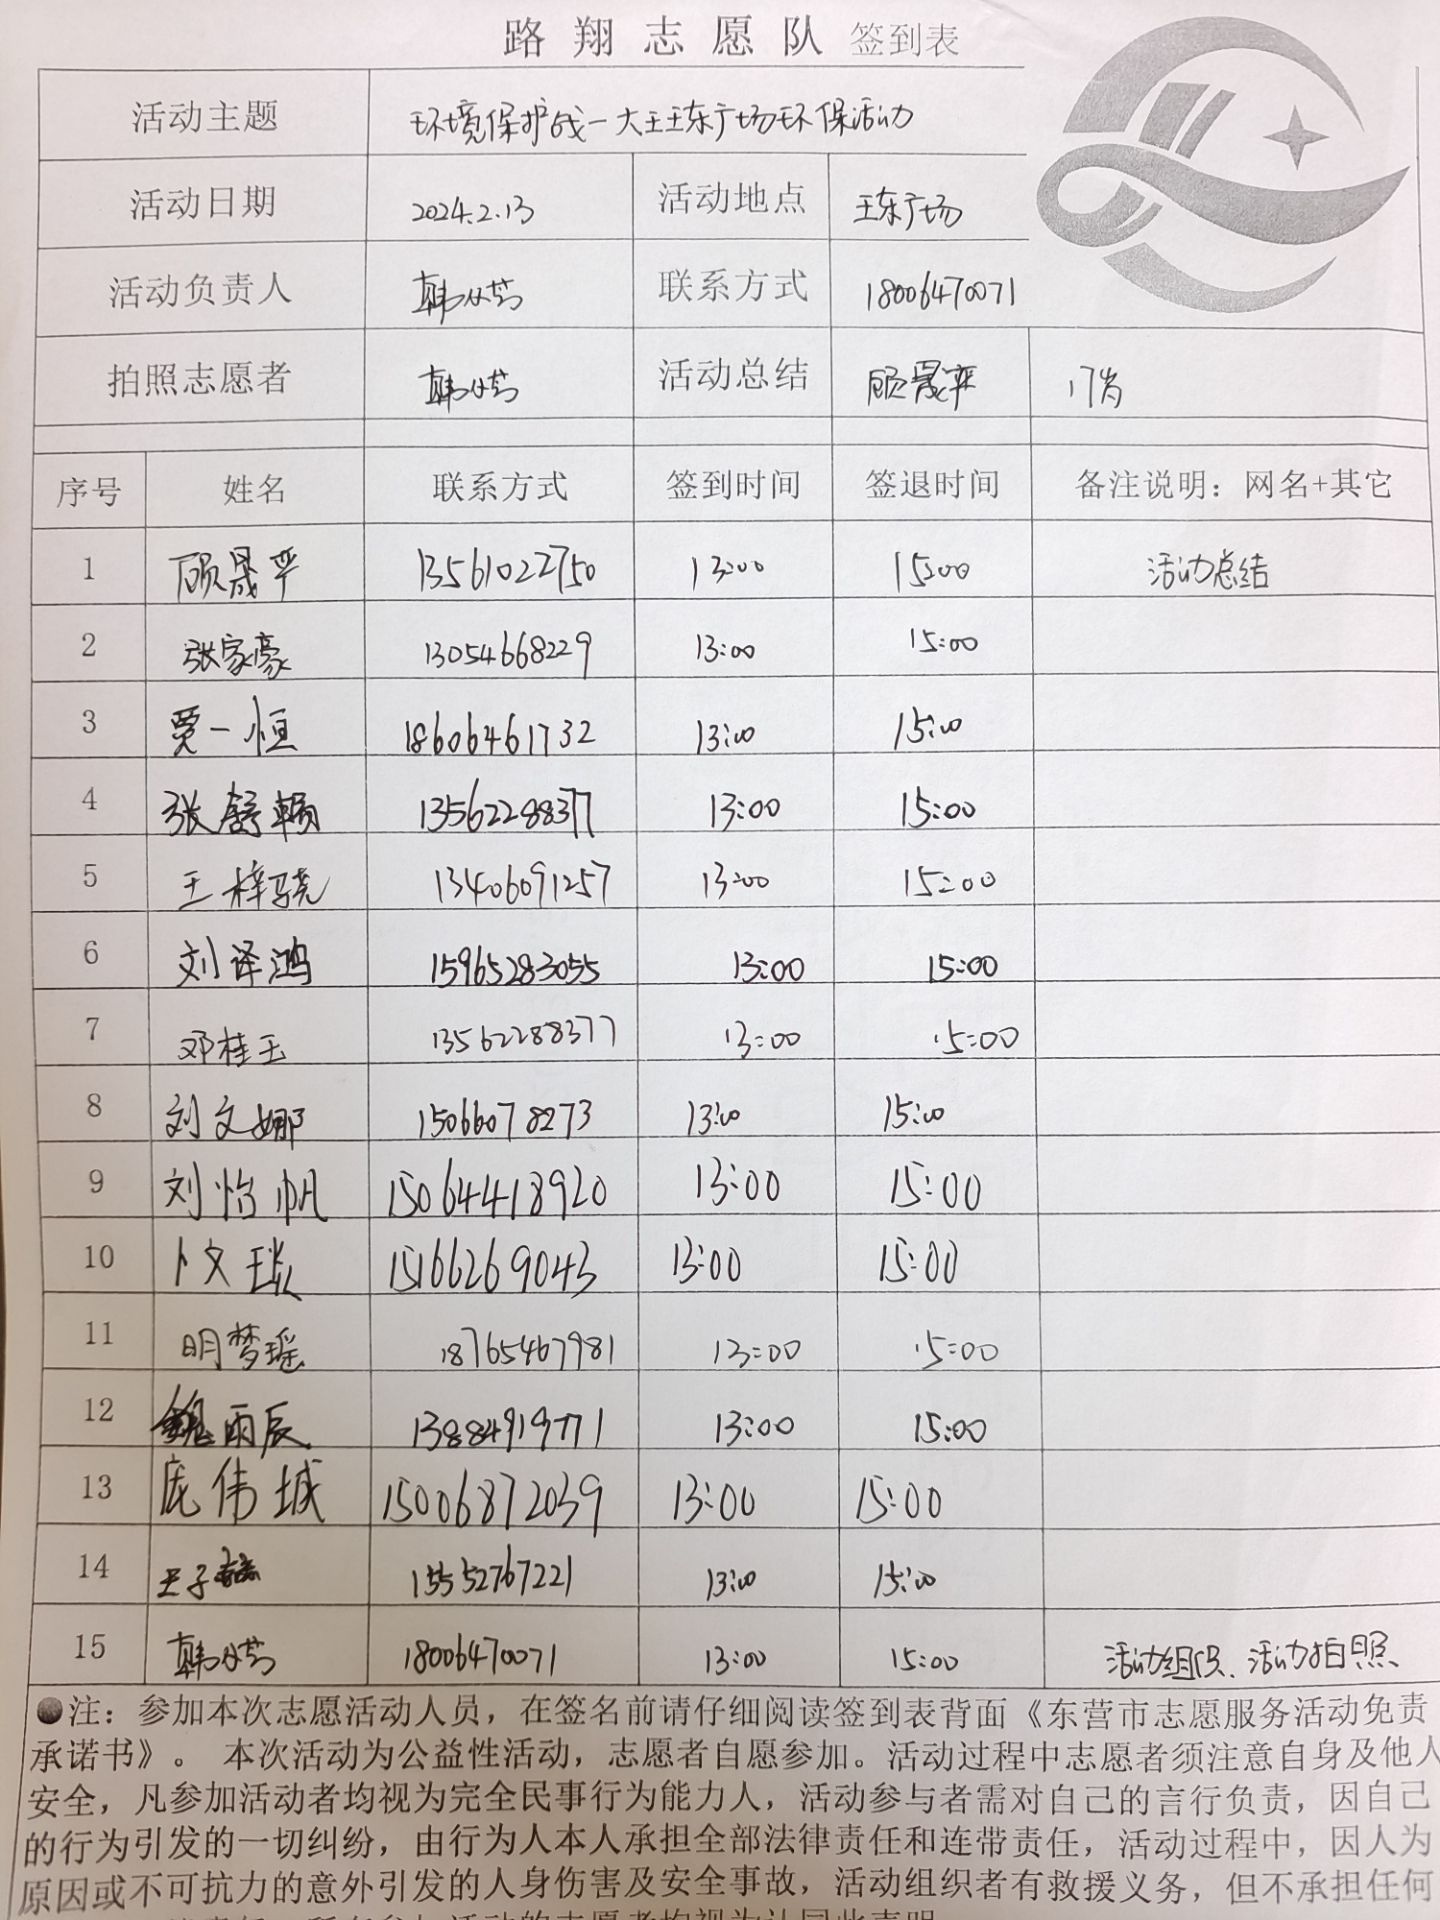 路翔志愿队 签到表
活动主题 环境保护战一大王王东广场环保活动
活动日期 2024.2.13 活动地点 王东广场
活动负责人 韩 联系方式 18006470071
拍照志愿者 韩 活动总结 顾晟平 17岁
序号 姓名 联系方式 签到时间 签退时间 备注说明：网名+其它
1 顾晟平 13561022750 13:00 15:00 活动总结
2 张家豪 13054668229 13:00 15:00
3 贾一恒 18606461732 13:00 15:00
4 张舒 13562288377 13:00 15:00
5 王梓骁 13406091257 13:00 15:00
6 刘译鸿 15965283055 13:00 15:00
7 邓桂玉 13562288377 13:00 15:00
8 刘文娜 15066078273 13:00 15:00
9 刘怡帆 15064418920 13:00 15:00
10 卜文琰 15166269043 13:00 15:00
11 明梦瑶 18765467981 13:00 15:00
12 魏雨辰 13884919771 13:00 15:00
13 庞伟城 15006872039 13:00 15:00
14 王子 15552767221 13:00 15:00
15 韩 18006470071 13:00 15:00 活动组织、活动拍照
●注：参加本次志愿活动人员，在签名前请仔细阅读签到表背面《东营市志愿服务活动免责
承诺书》。 本次活动为公益性活动，志愿者自愿参加。活动过程中志愿者须注意自身及他人
安全，凡参加活动者均视为完全民事行为能力人，活动参与者需对自己的言行负责，因自己
的行为引发的一切纠纷，由行为人本人承担全部法律责任和连带责任，活动过程中，因人为
原因或不可抗力的意外引发的人身伤害及安全事故，活动组织者有救援义务，但不承担任何